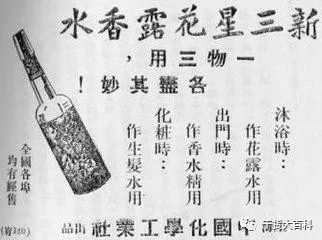 新三星花露香水
一物三用，
各盡其妙！
沐浴時：
作花露水用
出門時：
作香水精用
化粧時：
作生髮水用
全國各埠
均有經售
中國化學工業社出品